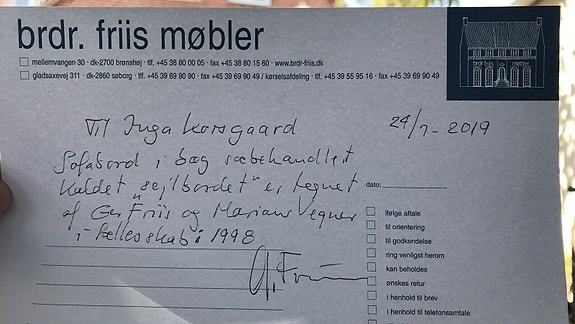 brdr. friis møbler
brdr friis møbler
mellemvangen 30 · dk-2700 brønshøj · tlf. +45 38 80 00 05 · fax +45 38 80 15 60 · www.brdr-friis.dk
gladsaxevej 311 · dk-2860 søborg · tlf. +45 39 69 90 90 · fax +45 39 69 90 49 / kørselsafdeling · tlf. +45 39 55 95 16 · fax +45 39 69 90 49
Til Inga Korsgaard 24/7-2019
Sofabord i bøg sæbehandlet
Kaldet "sejlbordet" er tegnet
af Friis og Marianne Wegner
i fællesskab i 1998
dato:
ifølge aftale
til orientering
til godkendelse
ring venligst herom
kan beholdes
ønskes retur
i henhold til brev
i henhold til telefonsamtale